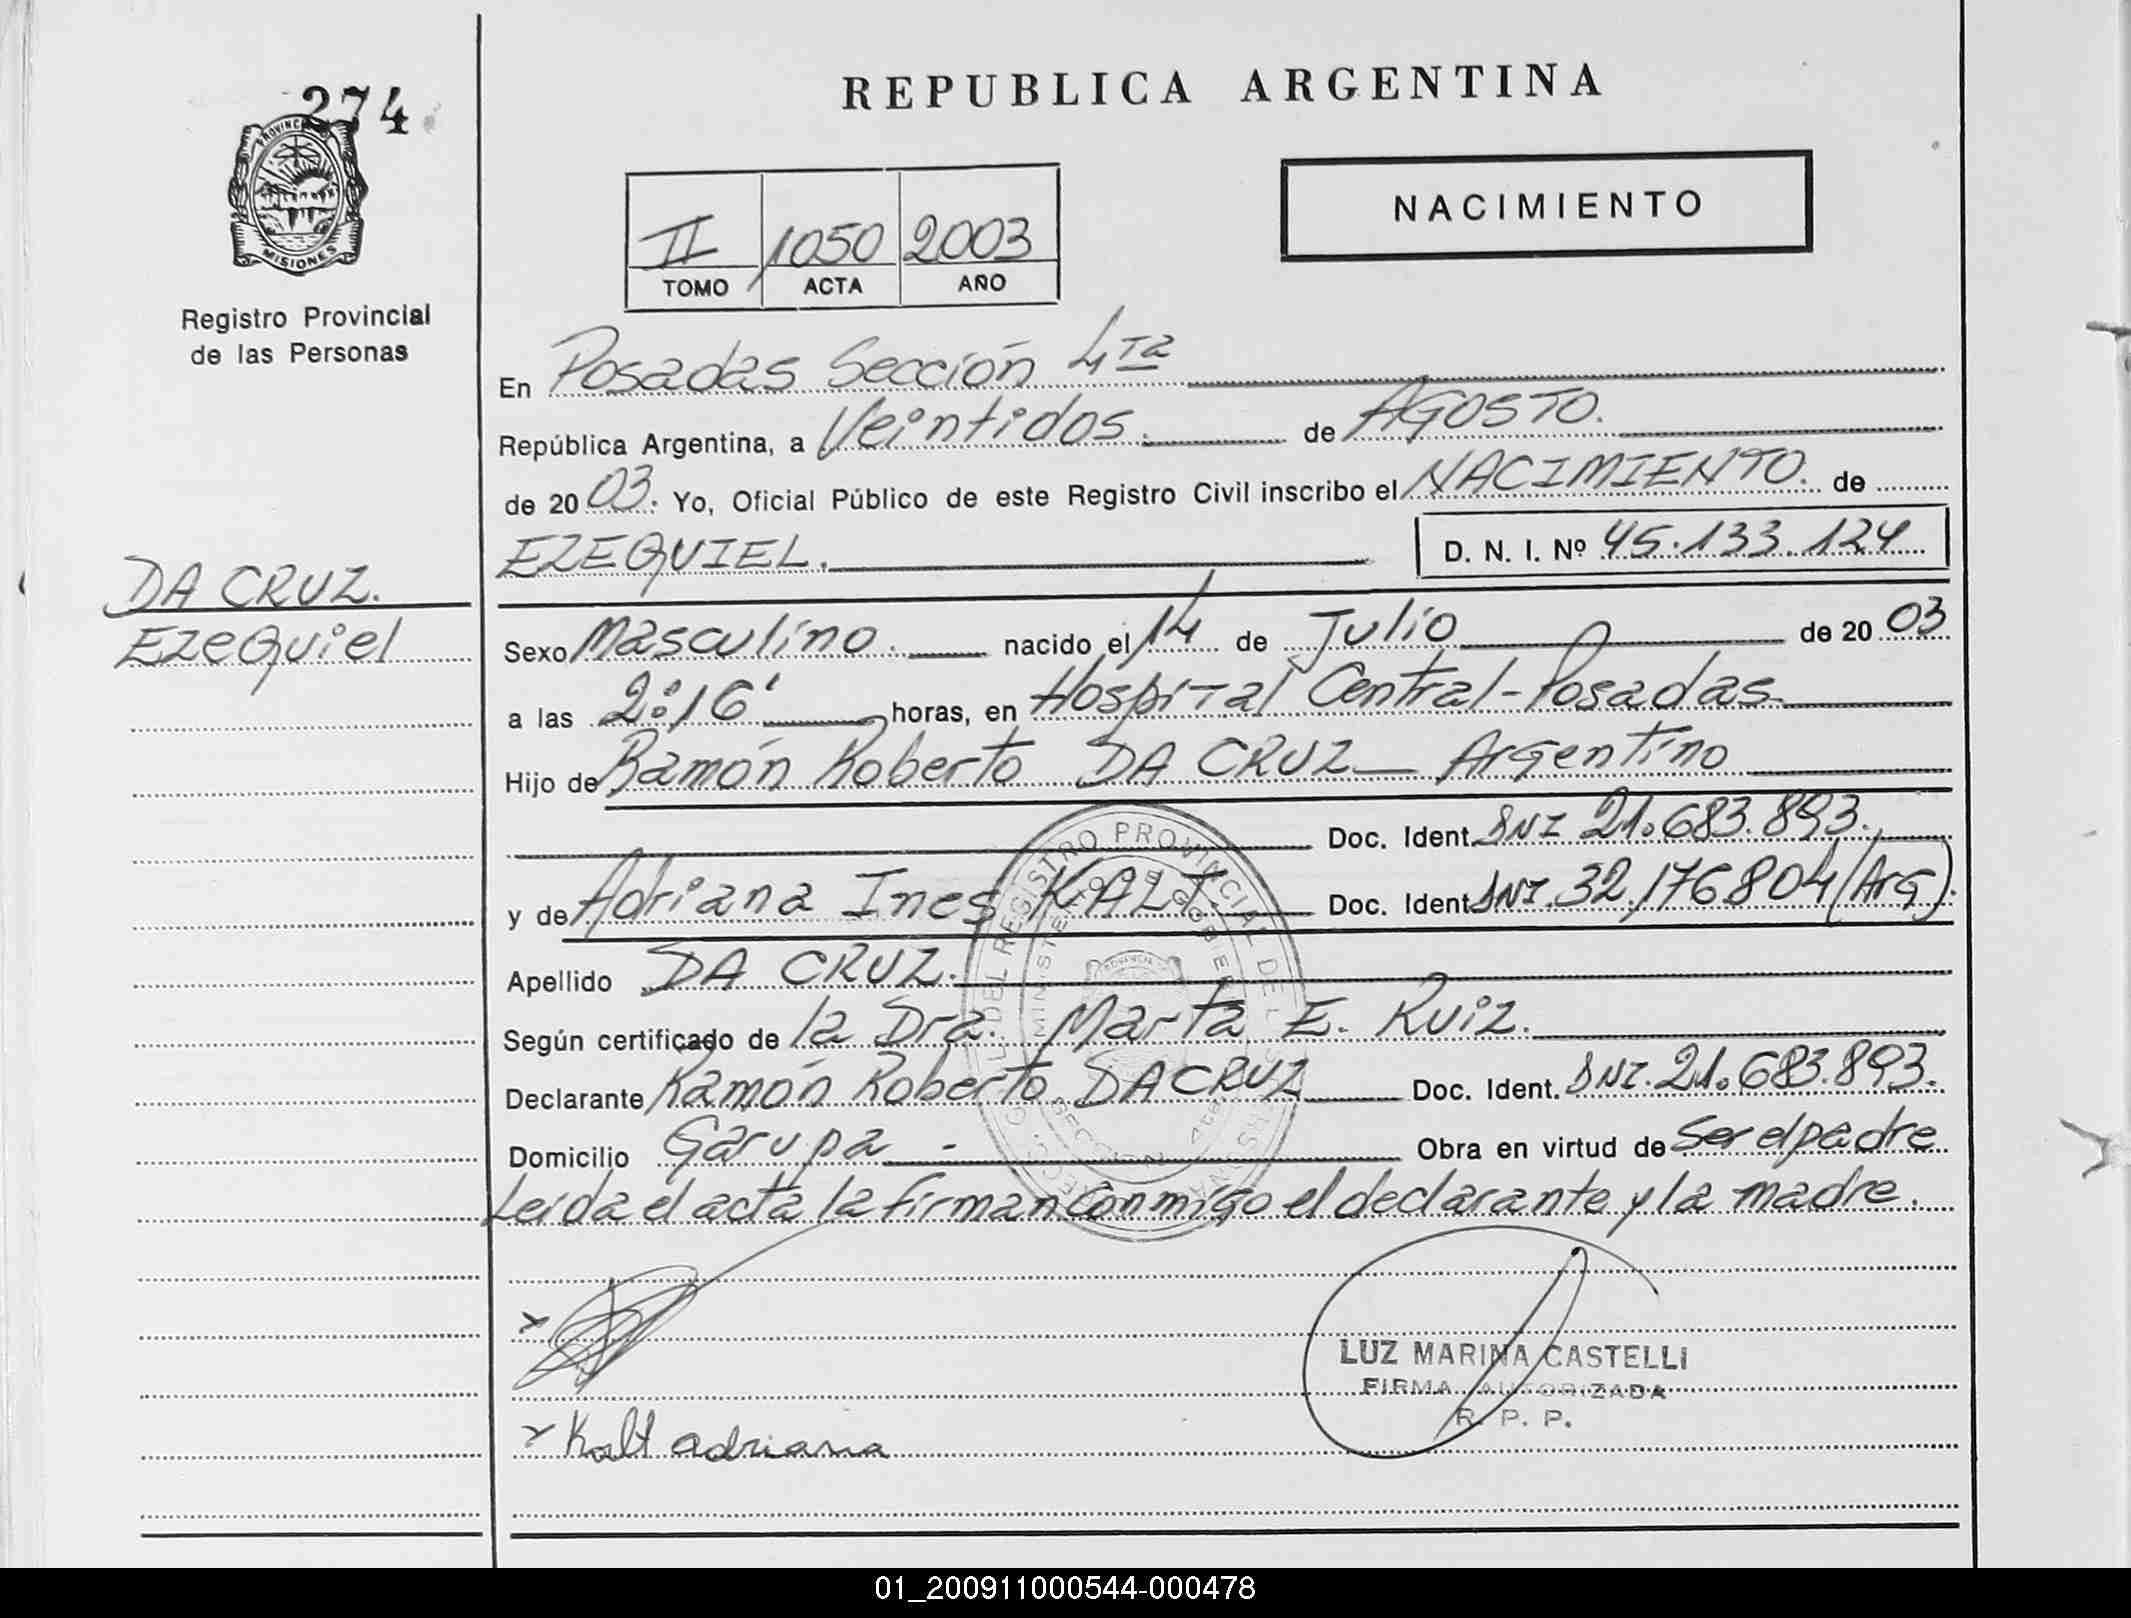 274
PROVINCIA
MISIONES
Registro Provincial
de las Personas
DA CRUZ.
EZEQuiel
REPUBLICA ARGENTINA
II 1050 2003
TOMO ACTA AÑO
NACIMIENTO
En Posadas Sección 4Ta
República Argentina, a Veintidos. de AGOSTO.
de 2003. Yo, Oficial Público de este Registro Civil inscribo el NACIMIENTO. de
EZEQUIEL. D. N. I. Nº 45.133.124
Sexo Masculino. nacido el 14 de Julio de 2003
a las 2:16' horas, en Hospital Central-Posadas
Hijo de Ramón Roberto DA CRUZ Argentino
Doc. Ident. DNI 21.683.893.
y de Adriana Ines KALT Doc. Ident. DNI. 32,176804 (Arg).
Apellido DA CRUZ.
Según certificado de la Dra. Marta E. Ruiz.
Declarante Ramón Roberto DACRUZ Doc. Ident. DNI. 21.683.893.
Domicilio Garupa - Obra en virtud de Ser el padre
Leída el acta la firman conmigo el declarante y la madre.
Kalt adriana
LUZ MARINA CASTELLI
FIRMA AUTORIZADA
R. P. P.
01_200911000544-000478